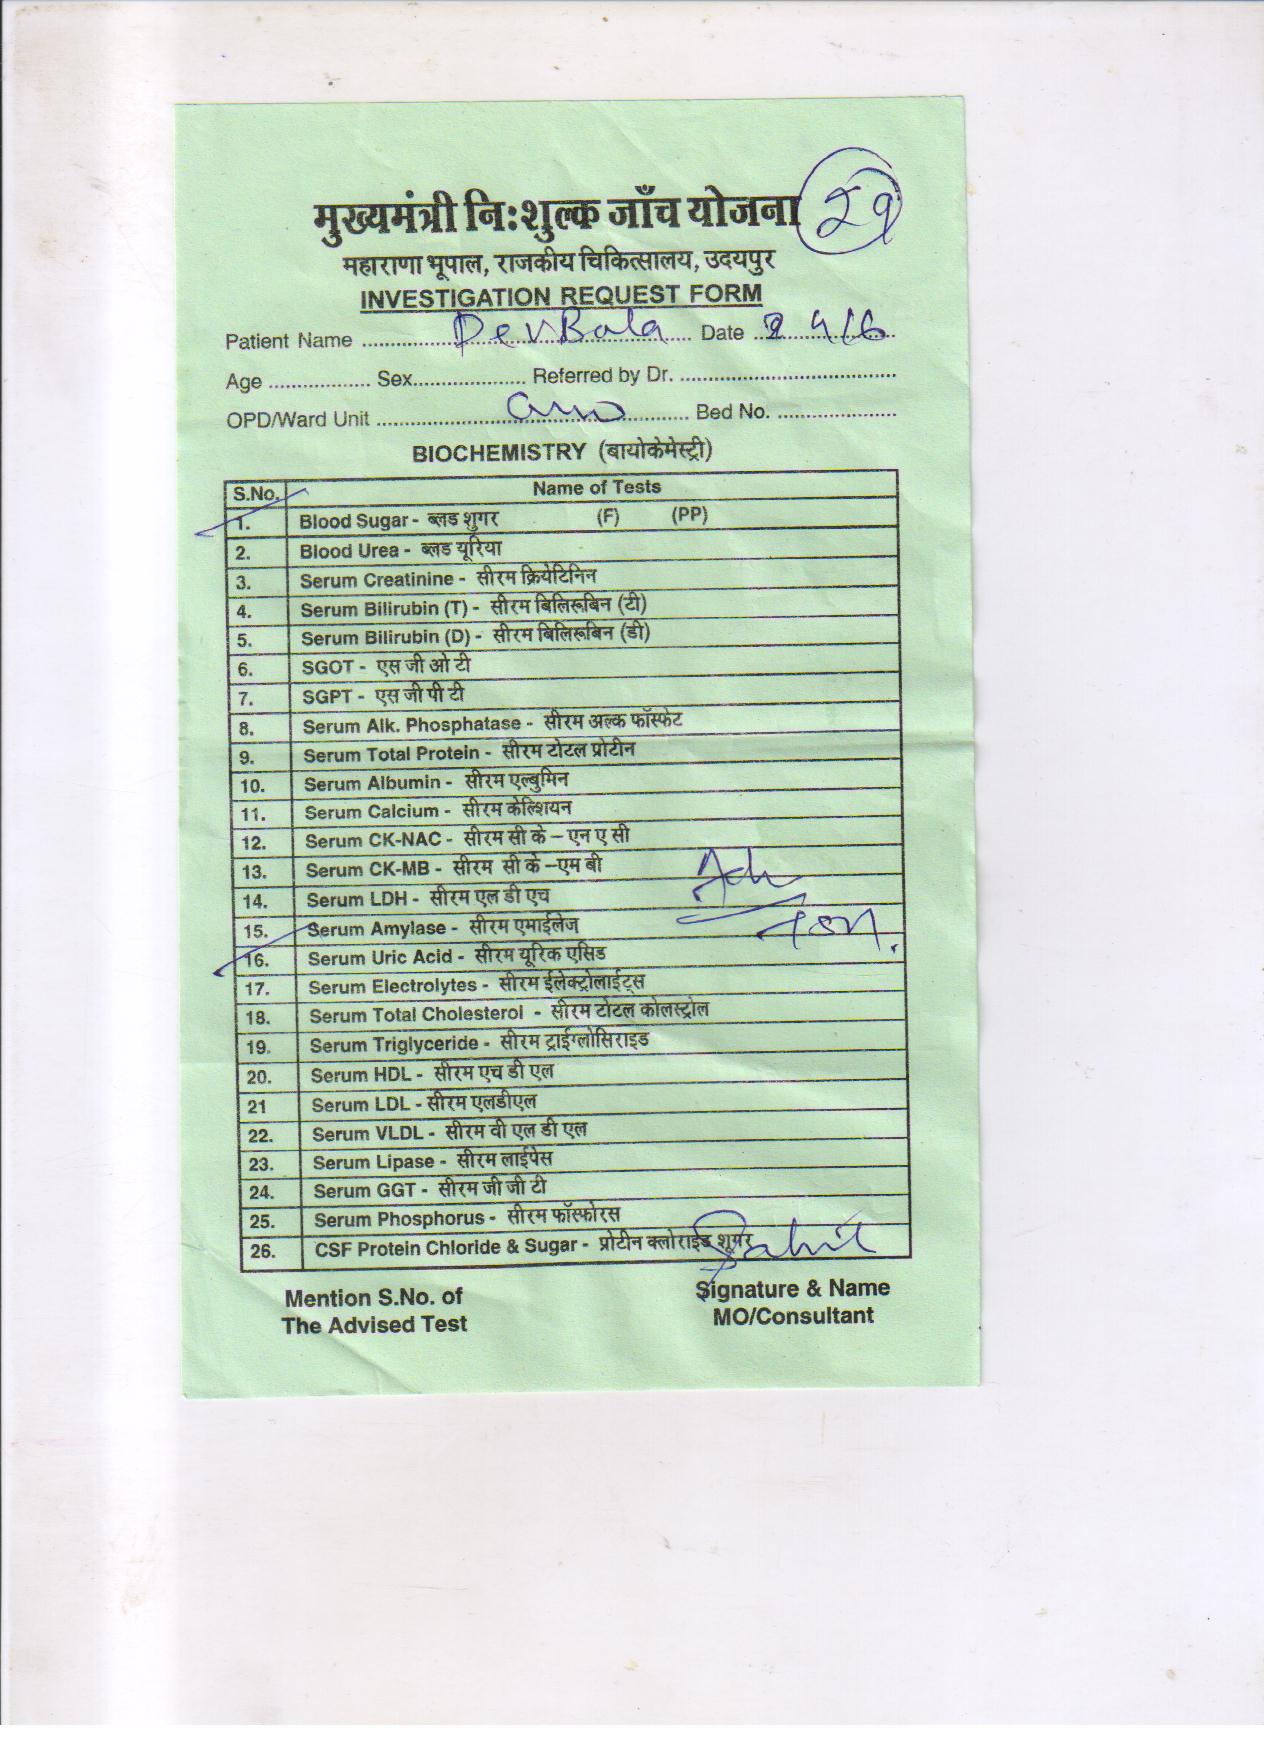 मुख्यमंत्री निःशुल्क जाँच योजना 29
महाराणा भूपाल, राजकीय चिकित्सालय, उदयपुर
INVESTIGATION REQUEST FORM
Patient Name .................... DevBala .................... Date ....................
Age .................. Sex.................... Referred by Dr. ......................................
OPD/Ward Unit ........................................ Bed No. .....................
BIOCHEMISTRY (बायोकेमेस्ट्री)
S.No. Name of Tests
1. Blood Sugar - ब्लड शुगर (F) (PP)
2. Blood Urea - ब्लड यूरिया
3. Serum Creatinine - सीरम क्रियेटिनिन
4. Serum Bilirubin (T) - सीरम बिलिरूबिन (टी)
5. Serum Bilirubin (D) - सीरम बिलिरूबिन (डी)
6. SGOT - एस जी ओ टी
7. SGPT - एस जी पी टी
8. Serum Alk. Phosphatase - सीरम अल्क फॉस्फेट
9. Serum Total Protein - सीरम टोटल प्रोटीन
10. Serum Albumin - सीरम एल्बुमिन
11. Serum Calcium - सीरम केल्शियन
12. Serum CK-NAC - सीरम सी के – एन ए सी
13. Serum CK-MB - सीरम सी के –एम बी
14. Serum LDH - सीरम एल डी एच
15. Serum Amylase - सीरम एमाईलेज
16. Serum Uric Acid - सीरम यूरिक एसिड
17. Serum Electrolytes - सीरम ईलेक्ट्रोलाईट्स
18. Serum Total Cholesterol - सीरम टोटल कोलस्ट्रोल
19. Serum Triglyceride - सीरम ट्राईग्लोसिराइड
20. Serum HDL - सीरम एच डी एल
21 Serum LDL - सीरम एलडीएल
22. Serum VLDL - सीरम वी एल डी एल
23. Serum Lipase - सीरम लाईपेस
24. Serum GGT - सीरम जी जी टी
25. Serum Phosphorus - सीरम फॉस्फोरस
26. CSF Protein Chloride & Sugar - प्रोटीन क्लोराईड शुगर
Mention S.No. of
The Advised Test
Signature & Name
MO/Consultant